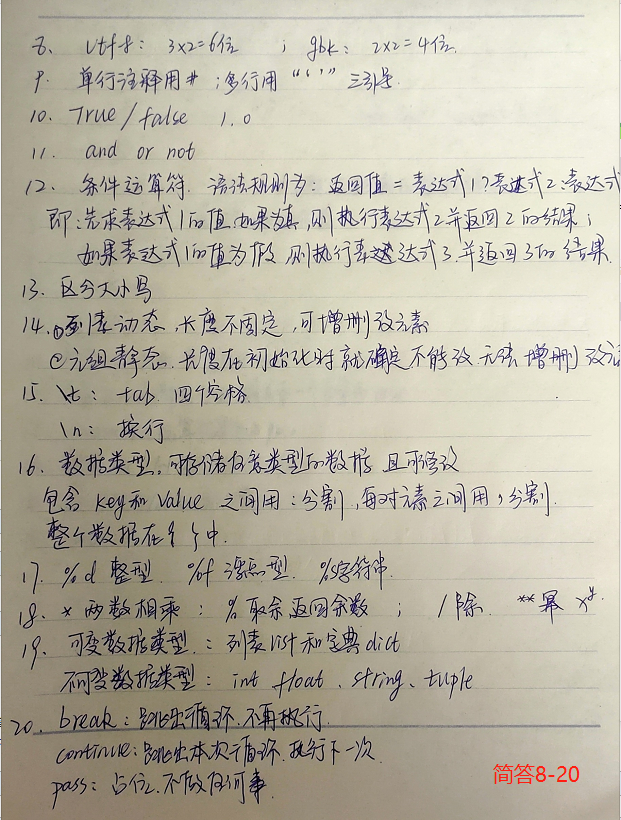 8. utf8: 3×2=6位 ; gbk: 2×2=4位.
9. 单行注释用# ;多行用 “‘’” 三引号.
10. True/false 1.0
11. and or not
12. 条件运算符. 语法规则为:返回值=表达式1?表达式2:表达式
即:先求表达式1的值,如果为真,则执行表达式2并返回2的结果;
如果表达式1的值为假,则执行表达式3.并返回3的结果.
13. 区分大小写
14. ①列表动态,长度不固定,可增删改元素
②元组静态.长度在初始化时就确定不能改 无法增删改元
15. \t: tab 四个空格
\n: 换行
16. 数据类型,可存储任意类型的数据 且可修改
包含 key和value 之间用:分割,每对元素之间用,分割.
整个数据在{ }中.
17. %d 整型. %f 浮点型. %s字符串.
18. * 两数相乘; % 取余 返回余数 ; / 除. ** 幂 x^y.
19. 可变数据类型:列表list和字典dict
不可变数据类型: int float、string、tuple
20. break:跳出循环.不再执行.
continue:跳出本次循环.执行下一次.
pass: 占位.不做任何事.
简答8-20